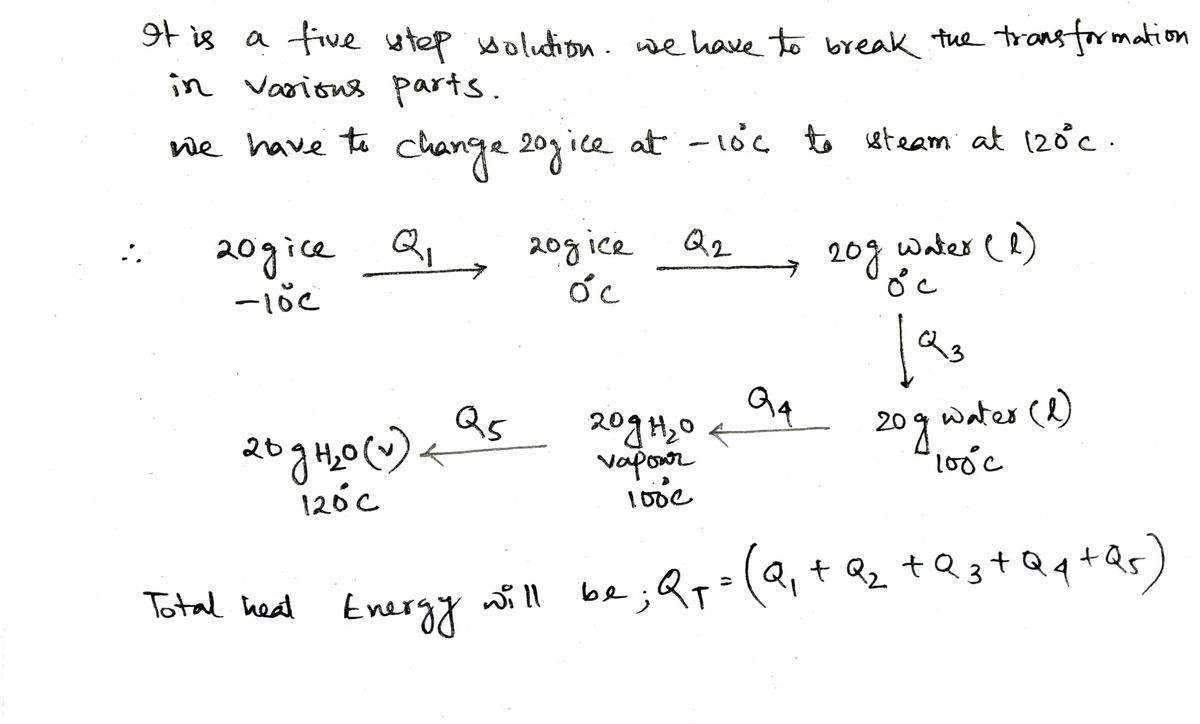 It is a five step solution. we have to break the transformation
in various parts.
we have to change 20g ice at -10°C to steam at 120°C.
∴ 20g ice Q₁ 20g ice Q₂ 20g water (l)
-10°C 0°C 0°C
Q₃
20g H₂O(v) Q₅ 20g H₂O Q₄ 20g water (l)
120°C vapour 100°C
100°C
Total heat Energy will be; Q_T = (Q₁ + Q₂ + Q₃ + Q₄ + Q₅)